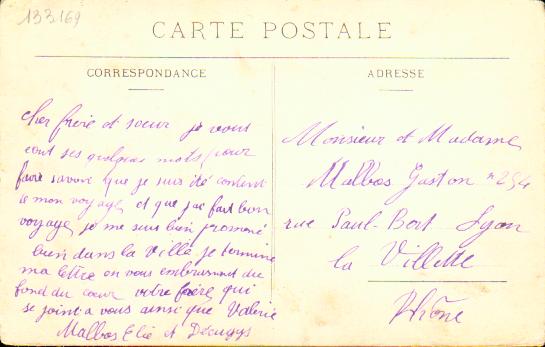 133.169
CARTE POSTALE
CORRESPONDANCE
cher frere et soeur je vous
ses quelques mots pour
faire savoir que je suis été content
de mon voyage et que j'ai fait bon
voyage je me suis bien promené
bien dans la ville je termine
ma lettre en vous embrassant du
fond du coeur votre frère qui
se joint a vous ainsi que Valerie
Malbos Elie et
ADRESSE
Monsieur et Madame
Malbos Gaston n° 254
rue Paul-Bert Lyon
la Villette
Rhône